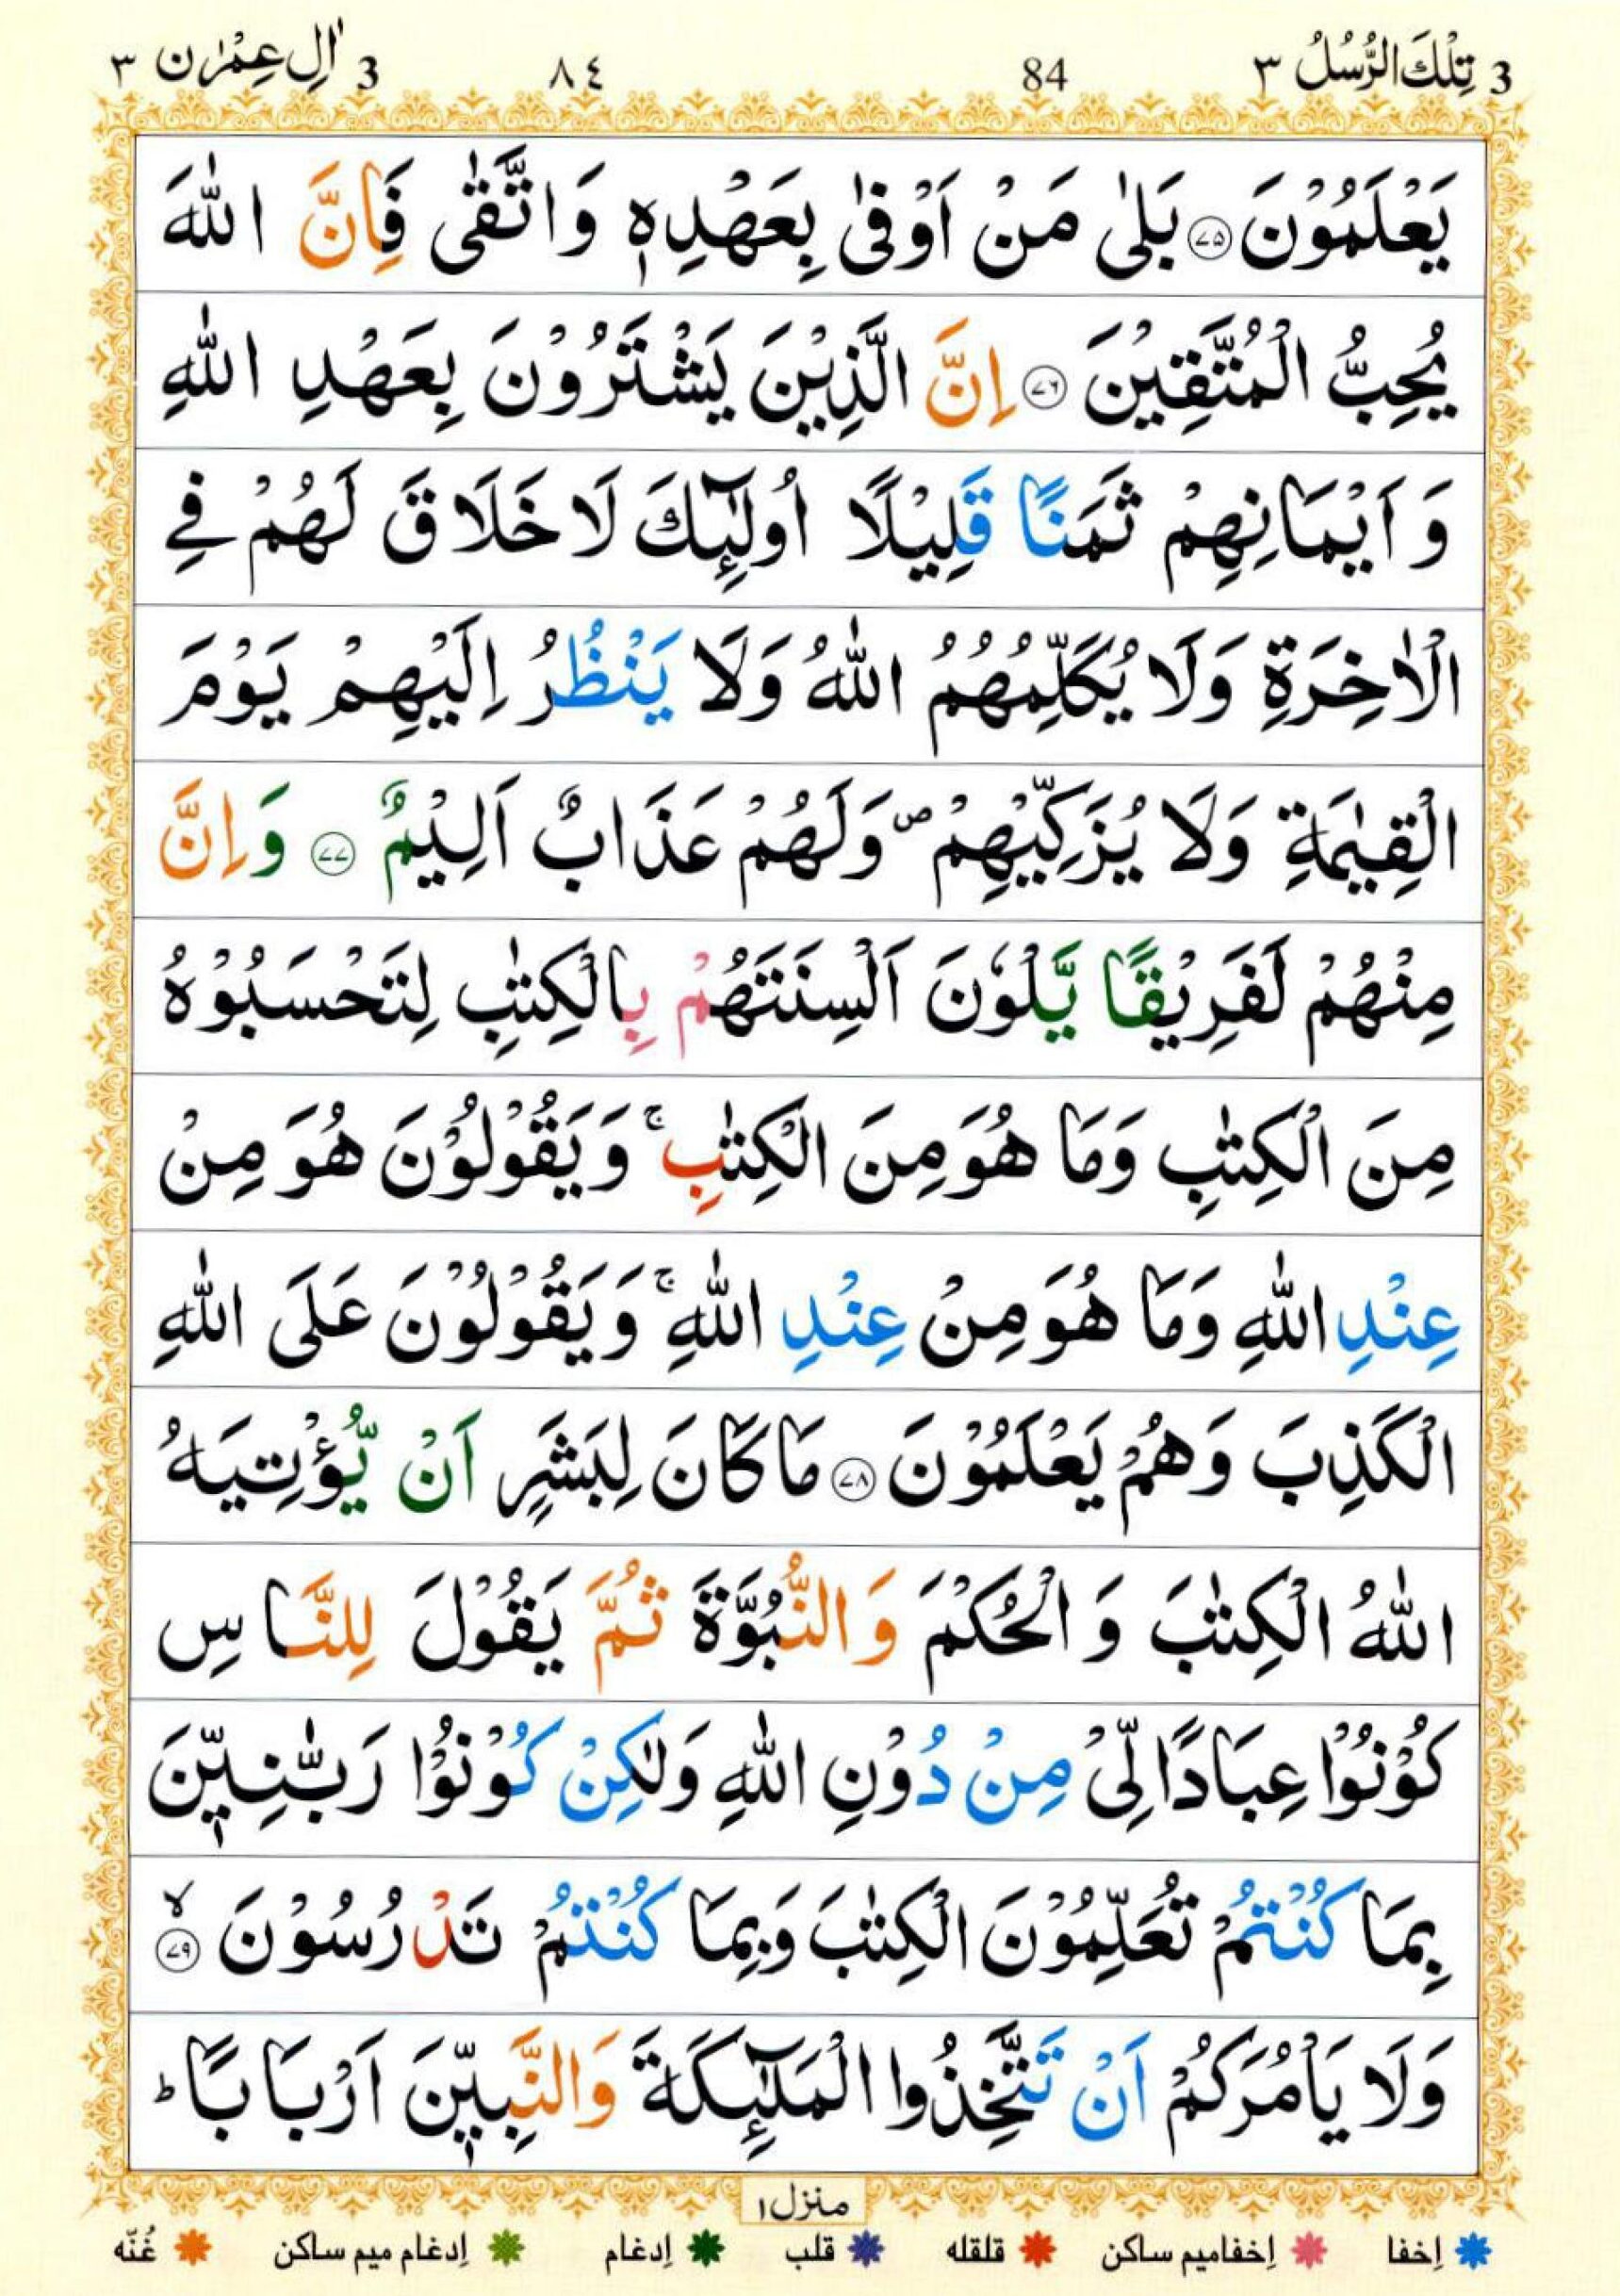 3 تِلْكَ الرُّسُلُ ٣ 84 ٨٤ 3 اٰلِ عِمْرٰن ٣
يَعْلَمُوْنَ ﴿۷۵﴾ بَلٰى مَنْ اَوْفٰى بِعَهْدِهٖ وَاتَّقٰى فَاِنَّ اللّٰهَ
يُحِبُّ الْمُتَّقِيْنَ ﴿۷۶﴾ اِنَّ الَّذِيْنَ يَشْتَرُوْنَ بِعَهْدِ اللّٰهِ
وَ اَيْمَانِهِمْ ثَمَنًا قَلِيْلًا اُولٰٓئِكَ لَا خَلَاقَ لَهُمْ فِي
الْاٰخِرَةِ وَلَا يُكَلِّمُهُمُ اللّٰهُ وَلَا يَنْظُرُ اِلَيْهِمْ يَوْمَ
الْقِيٰمَةِ وَلَا يُزَكِّيْهِمْ ۖ وَلَهُمْ عَذَابٌ اَلِيْمٌ ﴿۷۷﴾ وَاِنَّ
مِنْهُمْ لَفَرِيْقًا يَّلْوٗنَ اَلْسِنَتَهُمْ بِالْكِتٰبِ لِتَحْسَبُوْهُ
مِنَ الْكِتٰبِ وَمَا هُوَ مِنَ الْكِتٰبِ ۚ وَيَقُوْلُوْنَ هُوَ مِنْ
عِنْدِ اللّٰهِ وَمَا هُوَ مِنْ عِنْدِ اللّٰهِ ۚ وَيَقُوْلُوْنَ عَلَى اللّٰهِ
الْكَذِبَ وَهُمْ يَعْلَمُوْنَ ﴿۷۸﴾ مَا كَانَ لِبَشَرٍ اَنْ يُّؤْتِيَهُ
اللّٰهُ الْكِتٰبَ وَ الْحُكْمَ وَالنُّبُوَّةَ ثُمَّ يَقُوْلَ لِلنَّاسِ
كُوْنُوْا عِبَادًا لِّيْ مِنْ دُوْنِ اللّٰهِ وَلٰكِنْ كُوْنُوْا رَبّٰنِيّٖنَ
بِمَا كُنْتُمْ تُعَلِّمُوْنَ الْكِتٰبَ وَبِمَا كُنْتُمْ تَدْرُسُوْنَ ۙ﴿۷۹﴾
وَلَا يَاْمُرَكُمْ اَنْ تَتَّخِذُوا الْمَلٰٓئِكَةَ وَالنَّبِيّٖنَ اَرْبَابًا ؕ
منزل ۱
إخفا إخفامیم ساکن قلقله قلب إدغام إدغام میم ساکن غُنّه